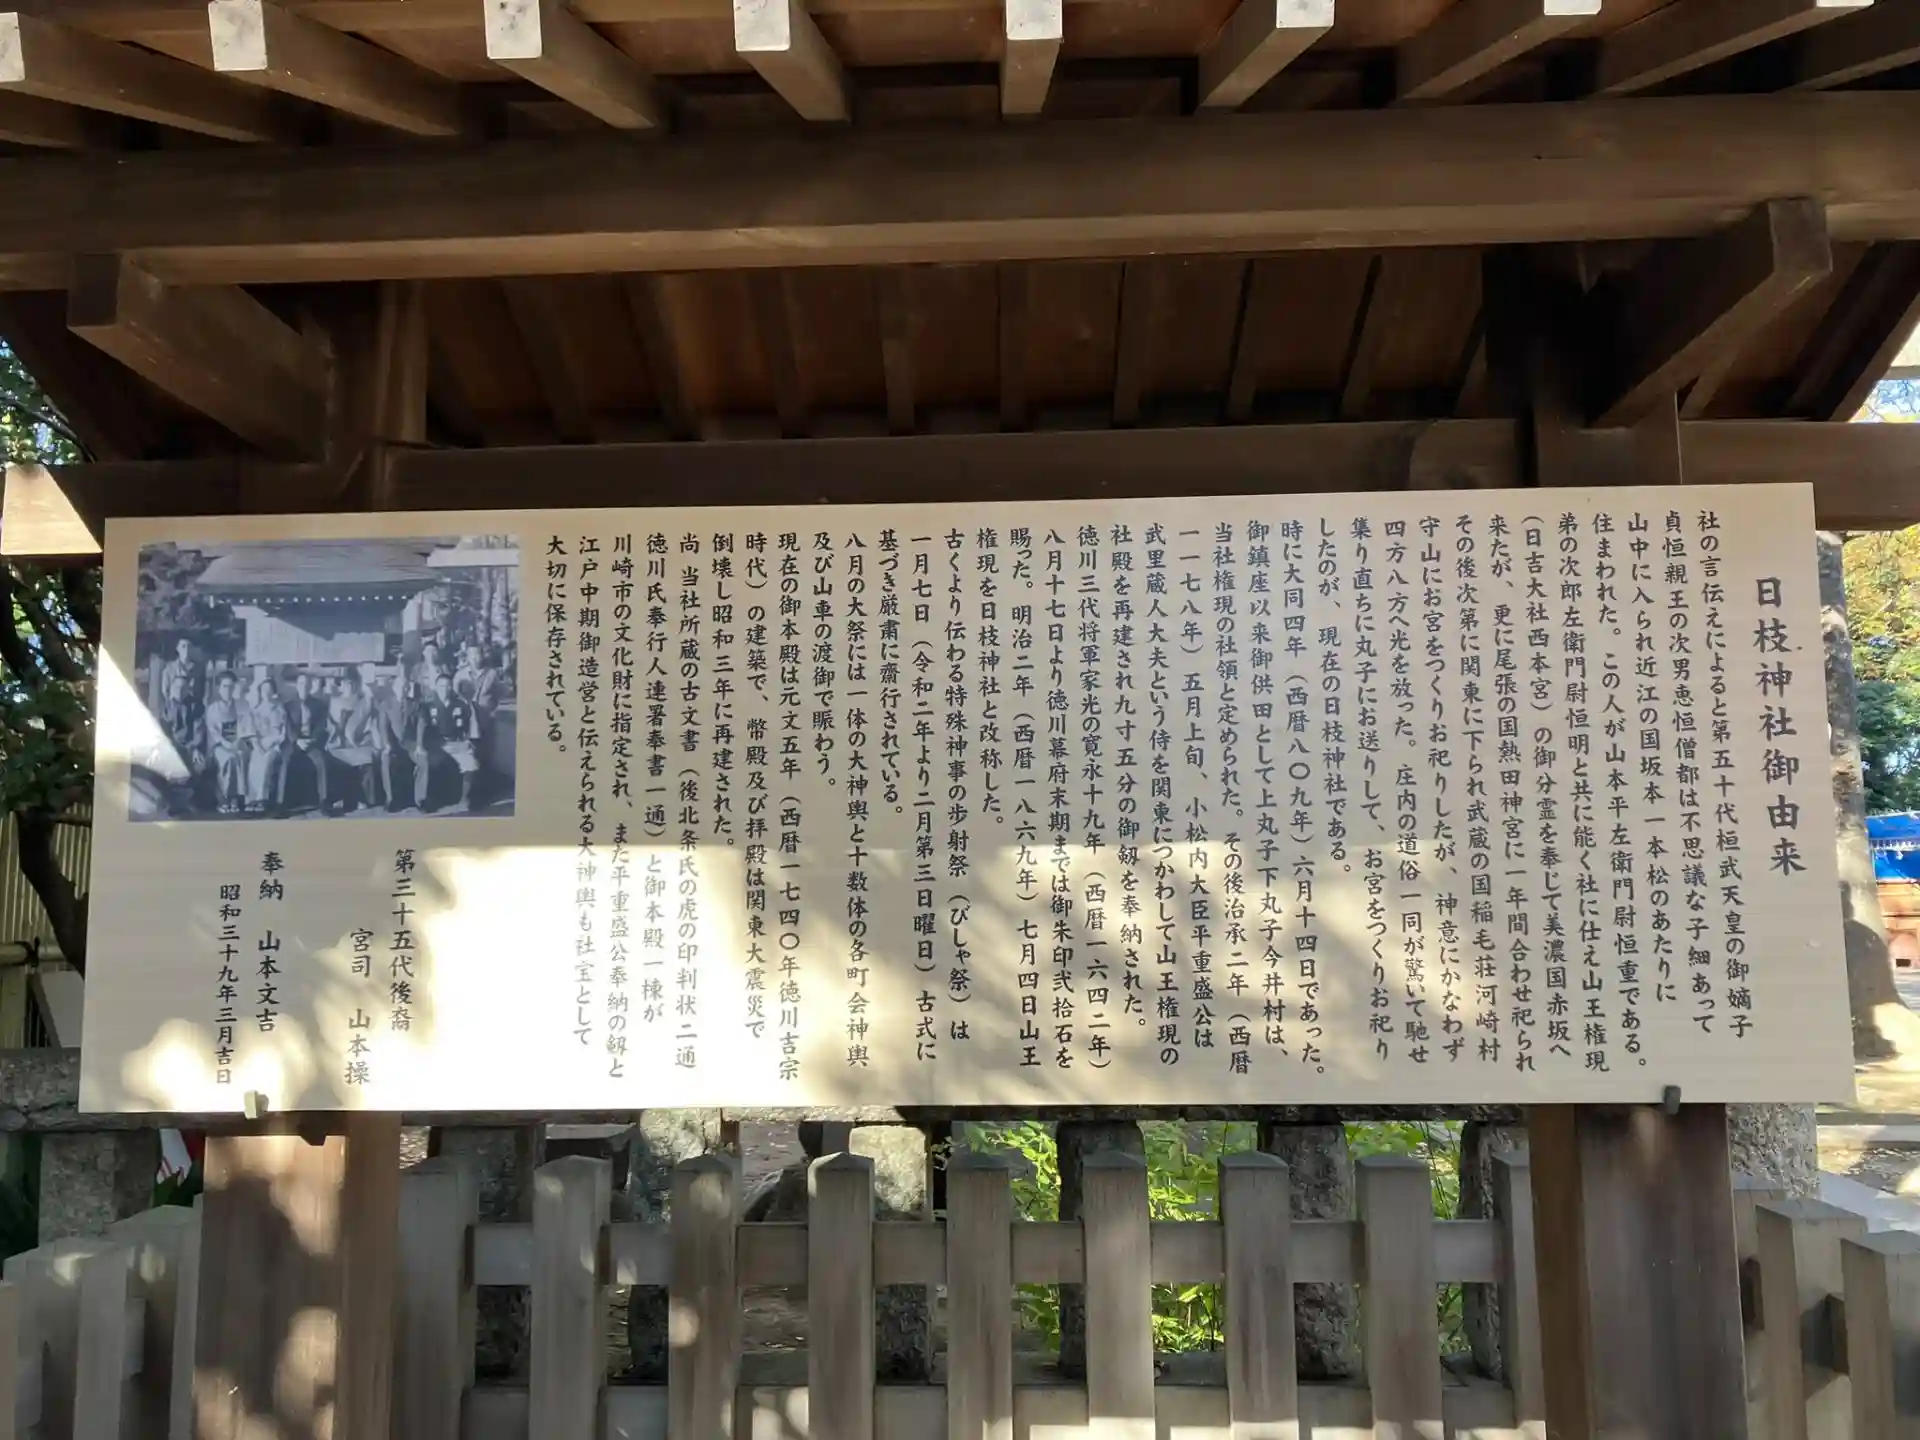 日枝神社御由来
社の言伝えによると第五十代桓武天皇の御嫡子
貞恒親王の次男恵恒僧都は不思議な子細あって
山中に入られ近江の国坂本一本松のあたりに
住まわれた。この人が山本平左衛門尉恒重である。
弟の次郎左衛門尉恒明と共に能く社に仕え山王権現
（日吉大社西本宮）の御分霊を奉じて美濃国赤坂へ
来たが、更に尾張の国熱田神宮に一年間合わせ祀られ
その後次第に関東に下られ武蔵の国稲毛荘河崎村
守山にお宮をつくりお祀りしたが、神意にかなわず
四方八方へ光を放った。庄内の道俗一同が驚いて馳せ
集り直ちに丸子にお送りして、お宮をつくりお祀り
したのが、現在の日枝神社である。
時に大同四年（西暦八〇九年）六月十四日であった。
御鎮座以来御供田として上丸子下丸子今井村は、
当社権現の社領と定められた。その後治承二年（西暦
一一七八年）五月上旬、小松内大臣平重盛公は
武里蔵人大夫という侍を関東につかわして山王権現の
社殿を再建され九寸五分の御剱を奉納された。
徳川三代将軍家光の寛永十九年（西暦一六四二年）
八月十七日より徳川幕府末期までは御朱印弐拾石を
賜った。明治二年（西暦一八六九年）七月四日山王
権現を日枝神社と改称した。
古くより伝わる特殊神事の歩射祭（びしゃ祭）は
一月七日（令和二年より二月第三日曜日）古式に
基づき厳粛に齋行されている。
八月の大祭には一体の大神輿と十数体の各町会神輿
及び山車の渡御で賑わう。
現在の御本殿は元文五年（西暦一七四〇年徳川吉宗
時代）の建築で、幣殿及び拝殿は関東大震災で
倒壊し昭和三年に再建された。
尚当社所蔵の古文書（後北条氏の虎の印判状二通
徳川氏奉行人連署奉書一通）と御本殿一棟が
川崎市の文化財に指定され、また平重盛公奉納の剱と
江戸中期御造営と伝えられる大神輿も社宝として
大切に保存されている。
第三十五代後裔
宮司　山本操
奉納　山本文吉
昭和三十九年三月吉日